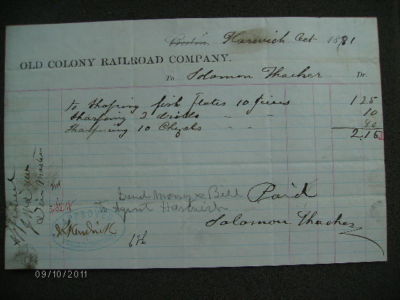 Boston, Harwich Oct 1881
OLD COLONY RAILROAD COMPANY.
To Solomon Thacher Dr.
To Shaping fish Plates 10 pieces 1.25
Sharping 2 10
Sharpning 10 80
2.15
Send Money & Bill Paid
To Agent Harwich
Solomon Thacher
Kendrick
09/10/2011